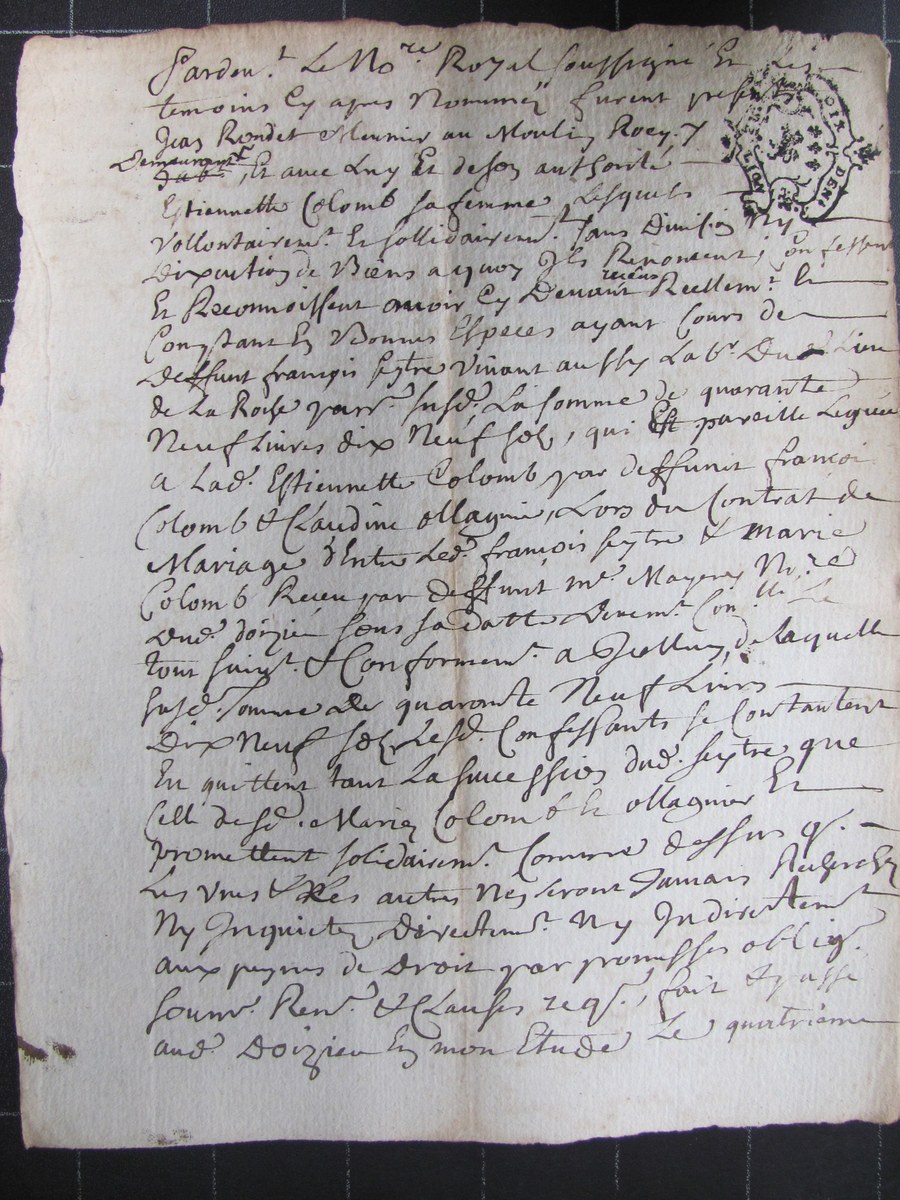 Pardev.t Le No.re Royal soussigné Et Les
temoins Cy apres Nommez furent presents
Jean Rondet Meunier au Moulin Rocy. y
Demeurant, Et avec Luy Et de son authorité
Estiennette Colomb sa femme, Lesquels
vollontairem.t Et sollidairem.t sans Division Ny
Dixcution de Biens a quoy Ils Renoncent, Confessent
Et Reconnoissent avoir Cy Devant receus Reellem.t Et
Comptant En Bonnes Especes ayant Cours de
Deffunt françois seytre vivant aussy Lab.r Dud Lieu
de La Roche parr. susd. La somme de quarante
Neuf Livres dix Neuf sols, qui Est pareille Leguée
a Lad. Estiennette Colomb par deffunt françoi
Colomb & Claudine ollagnier, Lors du Contrat de
Mariage d'Entre Led. françois seytre & marie
Colomb Receu par deffunt me. Mayery No.re
Dud. doizieu sous sa datte Duem.t Con.llé Le
tout suiv.t & Conformem.t a Icelluy, de laquelle
susd. somme de quarante Neuf Livres
Dix Neuf sols Lesd. Confessants se Contantent
En quittent tant La succession dud. seytre que
Celle desd. Marie Colomb Et ollagnier Et
promettent solidairem.t Comme dessus q.
Les uns & Les autres Ne seront Jamais Recherchez
Ny Inquietez Directem.t Ny Indirectem.t
aux peynes de Droit par promesses oblig.
soum. Ren. & Clauses req., fait & passé
aud. Doizieu En mon Etude Le quatrieme